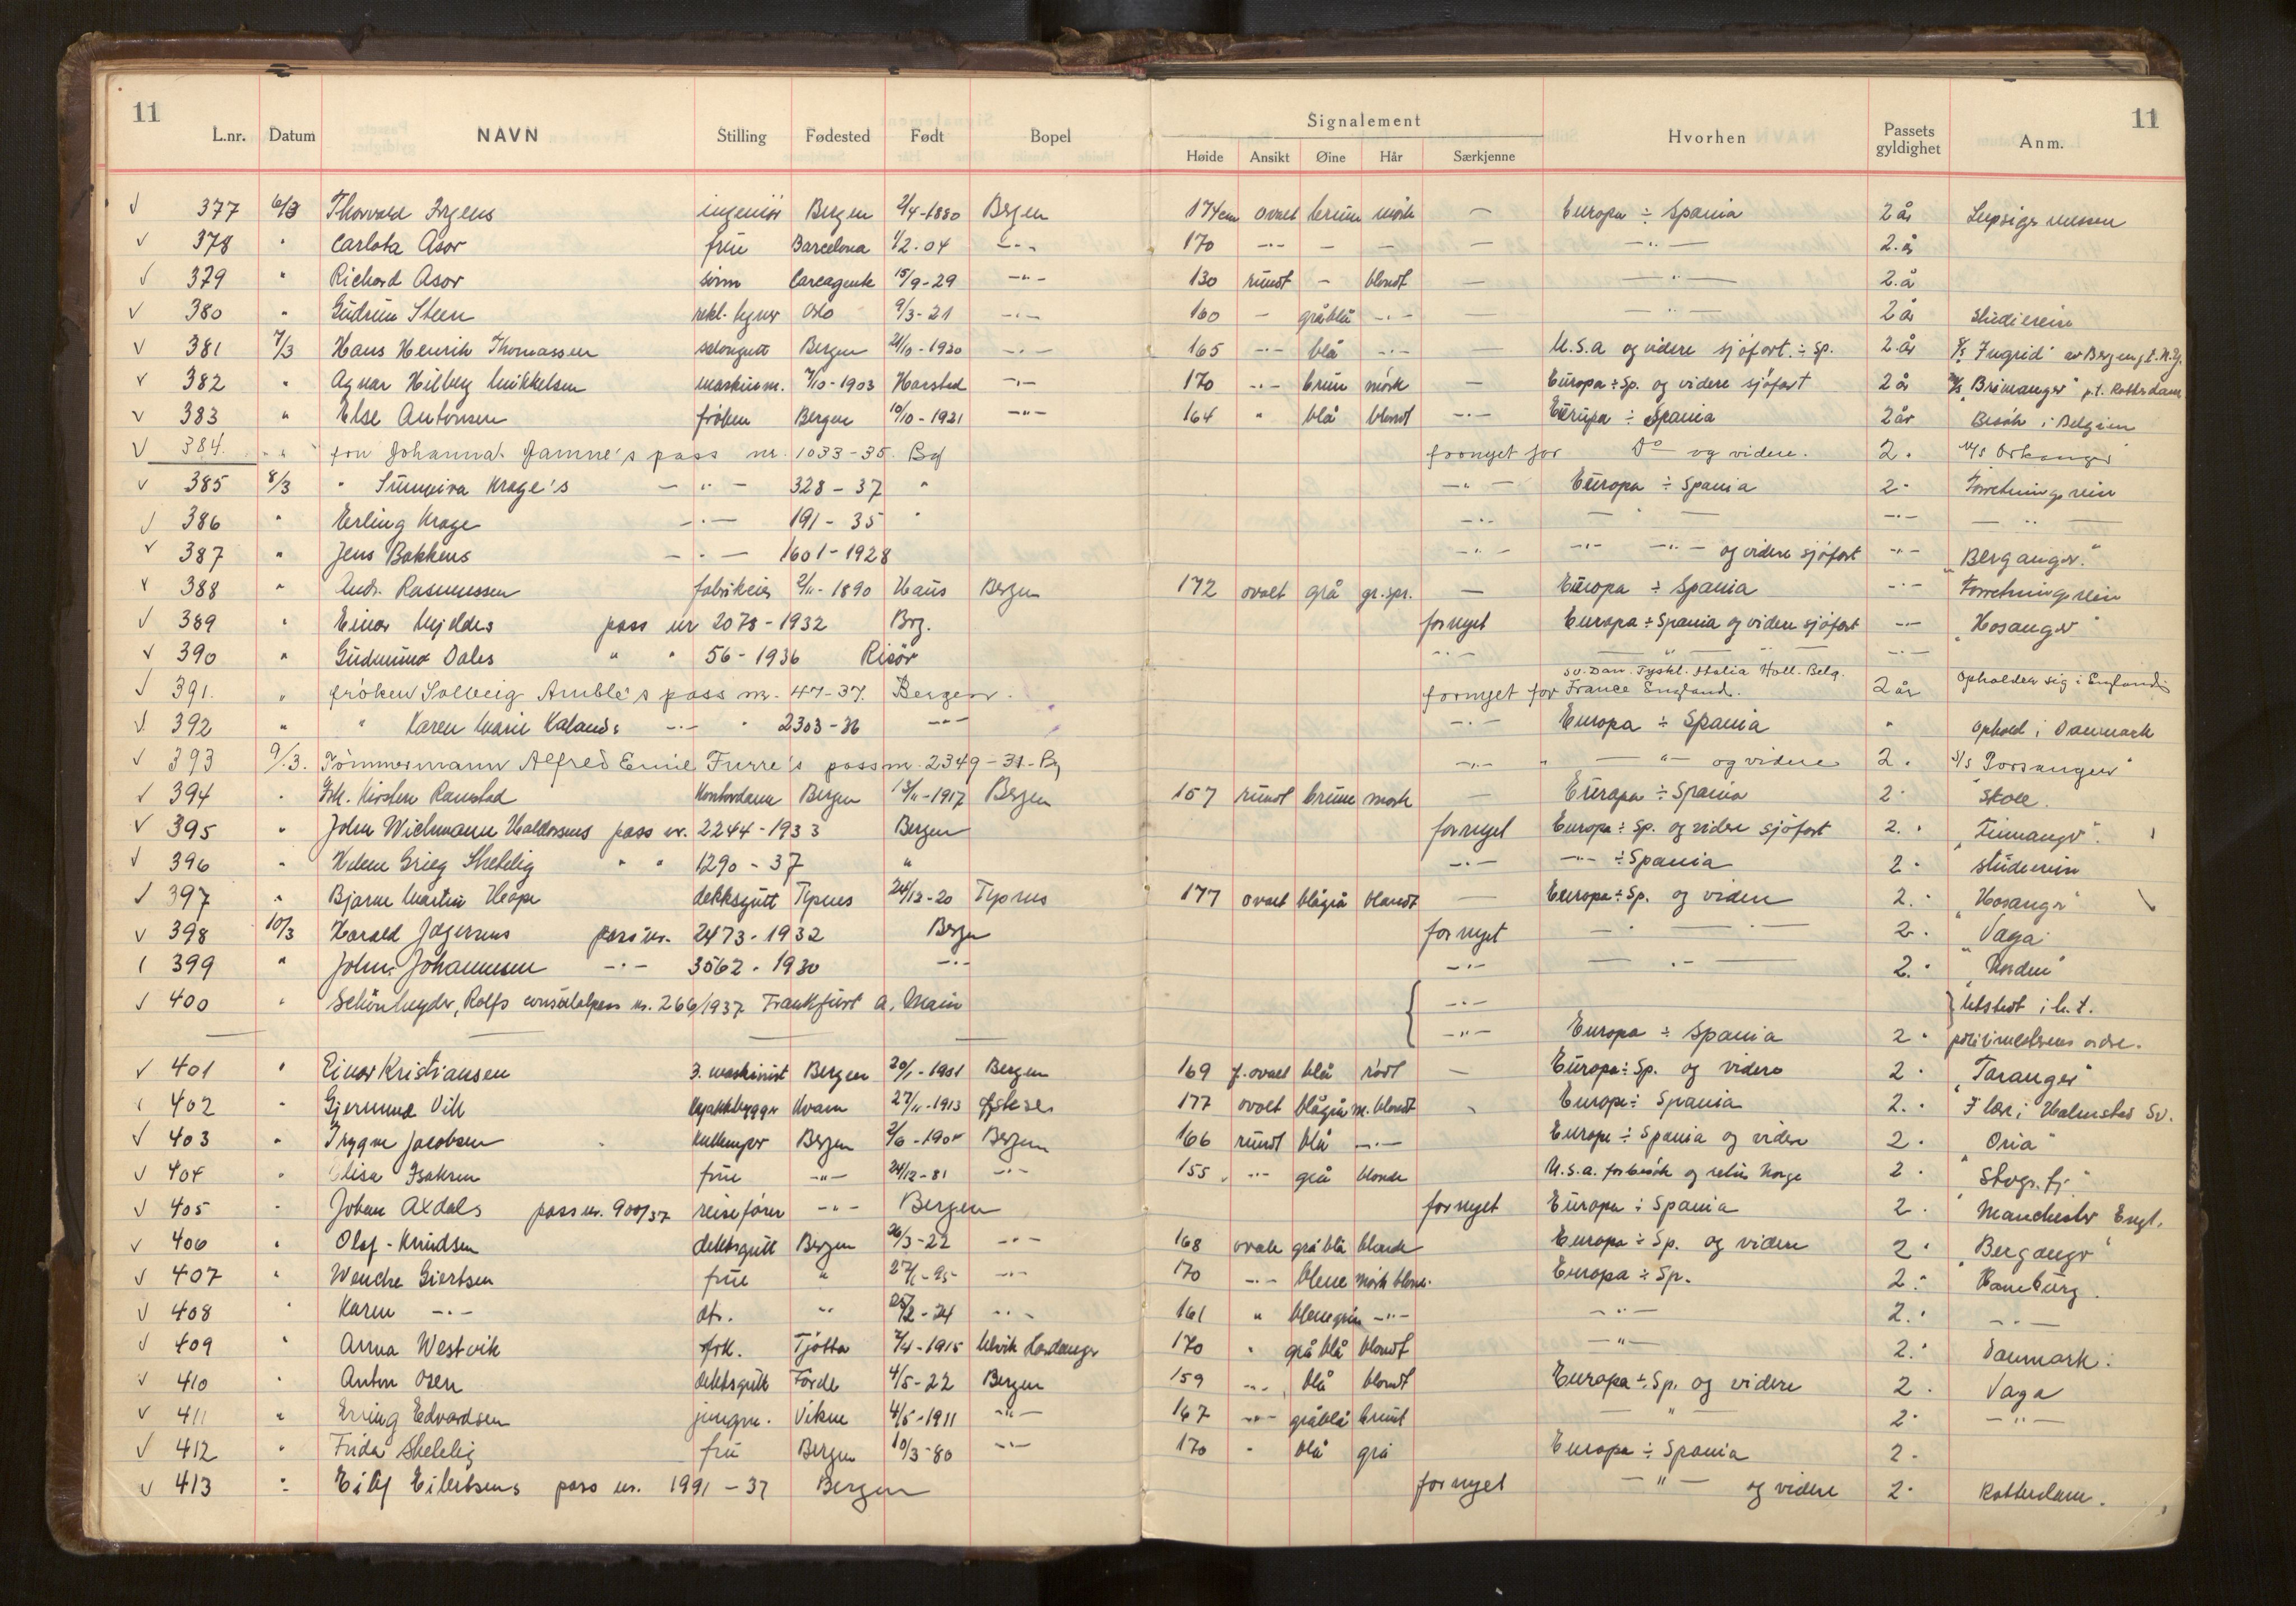 11
11
Signalement
L.nr. Datum NAVN Stilling Fødested Født Bopel Høide Ansikt Øine Hår Særkjenne Hvorhen Passets gyldighet Anm.
√ 377 6/3 Thorvald Irgens ingeniör Bergen 2/4-1880 Bergen 174cm ovalt brune mörk — Europa ÷ Spania 2 år Leipziger messen
√ 378 " Carlota Asor frue Barcelona 1/2-04 -"- 170 -"- — — — -"- 2 år
√ 379 " Richard Asor sönn Carcagente 15/9-29 -"- 130 rundt - blondt — -"- 2 å
√ 380 " Gudrun Steen rekl. tegner Oslo 9/3-21 -"- 160 - gråblå -"- — -"- 2 år Studiereise
√ 381 7/3 Hans Henrik Thomassen salongutt Bergen 21/10-1920 -"- 165 -"- blå -"- U.S.A og videre sjöfart ÷ Sp. 2 år "Ingrid" av Bergen p.t. N.Y.
√ 382 " Agnar Hilberg Mikkelsen maskinm. 7/10-1903 Harstad -"- 170 -"- brun mörk — Europa ÷ Sp. og videre sjöfart 2 år M/S "Brimanger" p.t. Rotterdam
√ 383 " Else Antonsen fröken Bergen 10/10-1921 -"- 164 " blå blondt -"- Europa ÷ Spania 2 år Besök i Belgien
√ 384. " " fru Johanna Jamne's pass nr. 1033-35 Bg fornyet for Do og videre. 2 " M/S Orkanger
√ 385 8/3 " Sunneiva Krage's -"- 328-37 " -"- Europa ÷ Spania 2 " Forretningsreise
√ 386 " Erling Krage -"- 191-35 " -"- -"- -"- -"-
√ 387 " Jens Bakkens -"- 1601-1928 -"- -"- -"- og videre sjöfart -"- "Berganger."
√ 388 " Andr. Rasmussen fabrikeier 2/11-1890 Haus Bergen 172 ovalt grå gr.spr. — Europa ÷ Spania -"- Forretningsreise
√ 389 " Einar Mjeldes pass nr 2078-1932 Brg. fornyet Europa ÷ Spania og videre sjöfart -"- "Hosanger"
√ 390 " Gudmund Dales " " 56-1936 Risör -"- -"- -"-
√ 391. " fröken Solveig Amble's pass nr. 47-37. Bergen. fornyet for Sv. Dan. Tyskl. Italia Holl. Belg. France England. 2 år Opholder sig i England
√ 392 " " Karen Marie Kalands -"- " 2303-36 -"- -"- Europa ÷ Spania " Ophold i Danmark
√ 393 9/3. Tömmermann Alfred Emil Furre's pass nr. 2349-31-Bg -"- " -"- og videre 2 " S/S Porsanger"
√ 394 " Frk. Kirsten Ramstad Kontordame Bergen 13/11-1917 Bergen 157 rundt brune mörk — Europa ÷ Spania 2 " Skole.
√ 395 " John Wichmann Haldorsens pass nr. 2244-1933 Bergen fornyet Europa ÷ Sp. og videre sjöfart 2. " "Finnanger".
√ 396 " Helene Grieg Shetelig " " 1290-37 " -"- -"- ÷ Spania 2 " studiereise
√ 397 " Bjarne Martin Heöpe dekksgutt 24/12-20 177 ovalt blågrå blondt — Europa ÷ Sp. og videre 2. " "Hosanger"
√ 398 10/3 Harald Jægersens pass nr. 2473-1932 Bergen fornyet -"- -"- 2 " "Vaga"
√ 399 " John Johannesen -"- 3562-1930 -"- -"- -"- 2. " "Norden"
√ 400 " Schönheyder, Rolfs consulatpass nr. 266/1937 Frankfurt a. Main -"- Utstedt i h.t.
-"- Europa ÷ Spania 2 " politimesterens ordre.
√ 401 " Einar Kristiansen 3. maskinist Bergen 20/1-1901 Bergen 169 f. ovalt blå rödt — Europa ÷ Sp. og videre 2 " "Taranger"
√ 402 " Gjermund Vik Kajakkbygger Kvam 27/11-1913 Öistese 177 ovalt blågrå m. blondt Europa ÷ Spania 2. " I lære i Halmstad Sv.
√ 403 " Trygve Jacobsen kullemper Bergen Bergen 166 rundt blå -"- Europa ÷ Spania og videre 2 " "Oria"
√ 404 " Elisa Isaksen frue -"- 24/12-81 -"- 155 -"- grå blonde U.S.A. for besök og retur Norge 2 " "Stvgr.fj."
√ 405 " Johan Axdals pass nr. 900/37 reisefører -"- Bergen fornyet Europa ÷ Spania 2. Manchester Engl.
√ 406 " Olaf - Knudsen dekksgutt Bergen 26/3-22 -"- 168 ovale gråblå blonde Europa ÷ Sp. og videre 2 " "Berganger"
√ 407 " Wenche Giertsen frue " 27/1-95 -"- 170 -"- blene mörk blond. Europa ÷ Sp. 2 " Hamburg.
√ 408 " Karen -"- dtr. " -"- 161 " -"- -"- 2. " -"-
√ 409 " Anna Westvik frk. Tjötta Ulvik Hardanger 170 " gråblå blondt -"- 2. " Danmark.
√ 410 " Anton Osen dekksgutt Förde 4/5-22 Bergen 159 -"- blå blondt Europa ÷ Sp. og videre 2 . Vaga
√ 411 " Erling Edvardsen jungm. Vikne 4/5-1911 -"- 167 -"- gråblå brunt -"- 2 " -"-
√ 412 " Frida Shetelig fru Bergen 10/3-80 -"- 170 " blå grå Europa ÷ Spania 2 "
√ 413 " Eilif Eilertsens pass nr. 1991-37 Bergen fornyet -"- og videre 2 " Rotterdam.